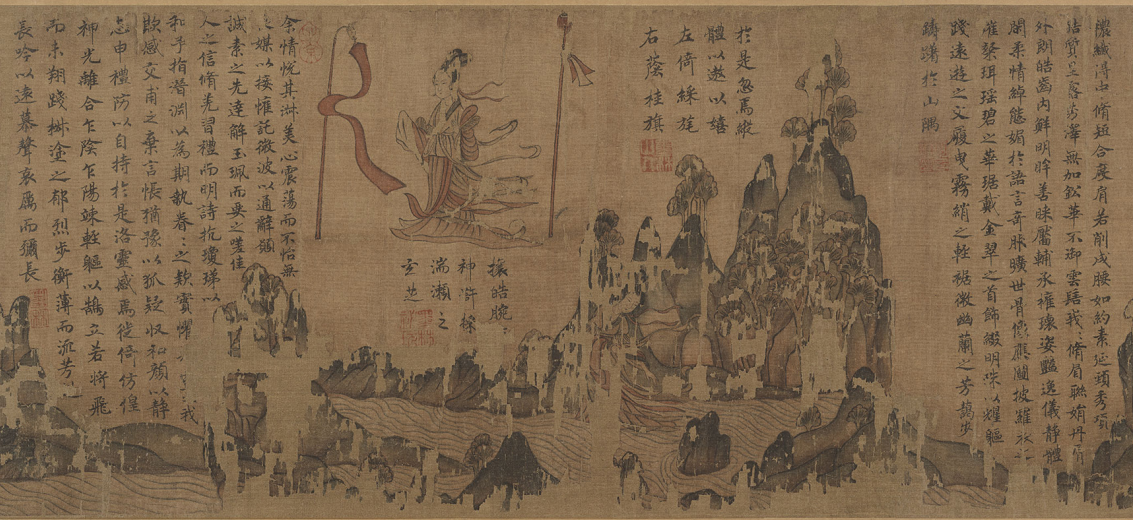 濃纖得中脩短合度肩若削成腰如約素延頸秀項
皓質呈露芳澤無加鉛華不御雲髻峩脩眉聯娟丹脣
外朗皓齒內鮮明眸善睞靨輔承權瓌姿豔逸儀靜體
閑柔情綽態媚於語言奇服曠世骨像應圖披羅衣
璀粲珥瑤碧之華琚戴金翠之首飾綴明珠以耀軀
踐遠遊之文履曳霧綃之輕裾微幽蘭之芳藹步
踟躕於山隅
於是忽焉縱
體以遨以嬉
左倚綵旄
右蔭桂旗
攘皓腕
神滸採
湍瀨之
玄芝
余情悅其淑美心震蕩而不怡無
媒以接懽託微波以通辭願
誠素之先達解玉珮而要之嗟佳
人之信脩羌習禮而明詩抗瓊珶以
和予指潛淵以為期執眷〻之款實懼我
欺感交甫之棄言悵猶豫以狐疑收和顏以靜
志申禮防以自持於是洛靈感焉徙倚仿偟
神光離合乍陰乍陽竦輕軀以鵠立若將飛
而未翔踐椒塗之郁烈步蘅薄而流芳
長吟以遠慕聲哀厲而彌長